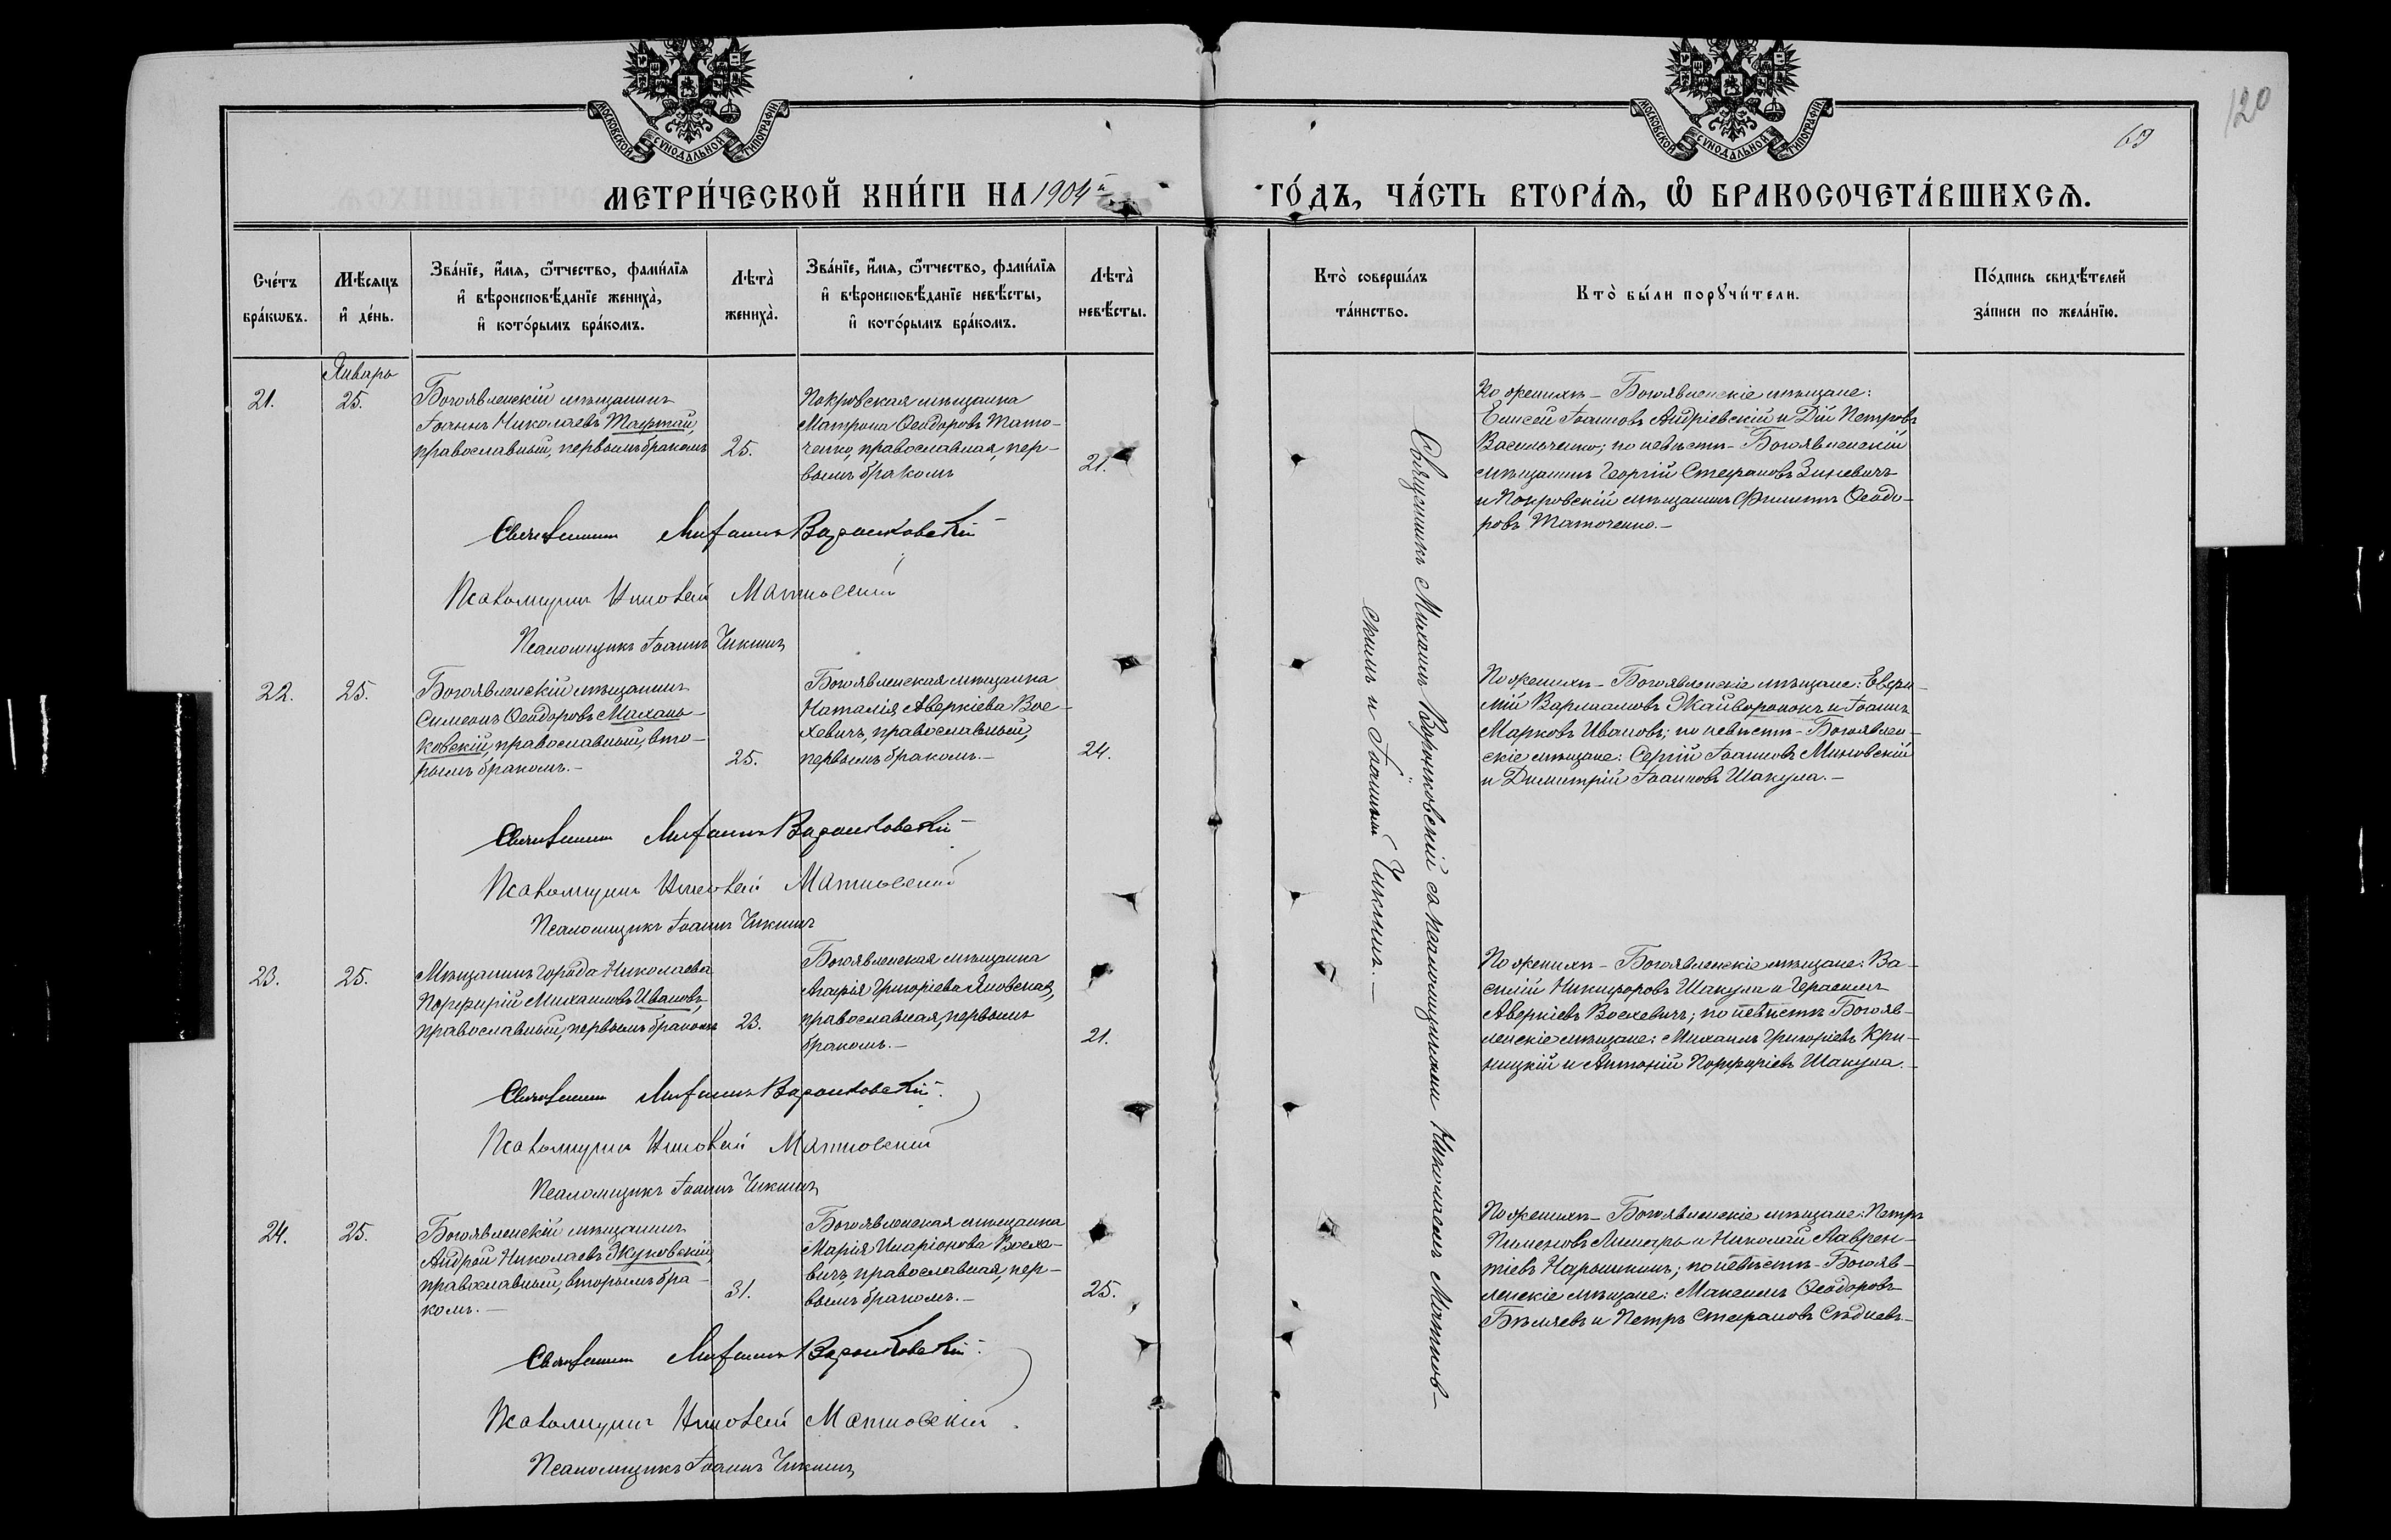 МОСКОВСКОЙ СѴНОДАЛЬНОЙ ТИПОГРАФІИ
МОСКОВСКОЙ СѴНОДАЛЬНОЙ ТИПОГРАФІИ
120
69
МЕТРИ́ЧЕСКОЙ КНИ́ГИ НА 1904й
ГО́ДЪ, ЧА́СТЬ ВТОРА́Ѧ, Ѽ БРАКОСОЧЕТА́ВШИХСѦ.
Сче́тъ
бра́кѡвъ.
Мѣ́сѧцъ
и҆ де́нь.
Зва́нїе, и҆́мѧ, ѻ҆́тчество, фами́лїѧ
и҆ вѣроисповѣ́данїе жениха̀,
и҆ кото́рымъ бра́комъ.
Лѣта̀
жениха̀.
Зва́нїе, и҆́мѧ, ѻ҆́тчество, фами́лїѧ
и҆ вѣроисповѣ́данїе невѣ́сты,
и҆ кото́рымъ бра́комъ.
Лѣта̀
невѣ́сты.
Кто̀ соверша́лъ
та́инство.
Кто̀ бы́ли порꙋчи́тели.
По́дпись свидѣ́телей
за́писи по жела́нїю.
Январь
21.
25.
Богоявленскій мѣщанинъ
Іоаннъ Николаевъ Тафтай,
православный, первымъ бракомъ
25.
Покровская мѣщанка
Матрона Ѳеодоровъ Тато-
ченко, православная, пер-
вымъ бракомъ
21.
По женихѣ - Богоявленскіе мѣщане:
Елисей Іоанновъ Андріевскій и Дій Петровъ
Васильченко; по невѣстѣ - Богоявленскій
мѣщанинъ Георгій Стефановъ Зинкевичъ
и Покровскій мѣщанинъ Филиппъ Ѳеодо-
ровъ Таточенко. -
Священникъ Михаилъ
Псаломщикъ Николай
Псаломщикъ Іоаннъ Чикинъ
22.
25.
Богоявленскій мѣщанинъ
Симеонъ Ѳеодоровъ Махань-
ковскій, православный, вто-
рымъ бракомъ. -
25.
Богоявленская мѣщанка
Наталія Аверкіева Вос-
хевичъ, православный,
первымъ бракомъ. -
24.
По женихѣ - Богоявленскіе мѣщане: Евѳи-
мій Варлаамовъ Жайворонокъ и Іоаннъ
Марковъ Ивановъ; по невѣстѣ - Богоявлен-
скіе мѣщане: Сергій Іоанновъ Миновскій
и Димитрій Іоанновъ Шакула. -
Священникъ Михаилъ
Псаломщикъ Николай
Псаломщикъ Іоаннъ Чикинъ
23.
25.
Мѣщанинъ города Николаева
Порфирій Михаиловъ Ивановъ,
православный, первымъ бракомъ
23.
Богоявленская мѣщанка
Агафія Григоріева Яновская,
православная, первымъ
бракомъ. -
21.
По женихѣ - Богоявленскіе мѣщане: Ва-
силій Никифоровъ Шакула и Герасимъ
Аверкіевъ Восхевичъ; по невѣстѣ Богояв-
ленскіе мѣщане: Михаилъ Григоріевъ Кри-
ницкій и Антоній Порфиріевъ Шакула. -
Священникъ Михаилъ
Псаломщикъ Николай
Псаломщикъ Іоаннъ Чикинъ
24.
25.
Богоявленскій мѣщанинъ
Андрей Николаевъ Жуковскій,
православный, вторымъ бра-
комъ. -
31.
Богоявленская мѣщанка
Марія Иларіонова Восхе-
вичъ, православная, пер-
вымъ бракомъ. -
25.
По женихѣ - Богоявленскіе мѣщане: Петръ
Пименовъ и Николай Лаврен-
тіевъ Нарышкинъ; по невѣстѣ - Богояв-
ленскіе мѣщане: Максимъ Ѳеодоровъ
Бѣляевъ и Петръ Стефановъ Сѣдневъ -
Священникъ Михаилъ
Псаломщикъ Николай
Псаломщикъ Іоаннъ Чикинъ
Священникъ Михаилъ съ псаломщиками Николаемъ
скимъ и Іоанномъ Чикинымъ. -